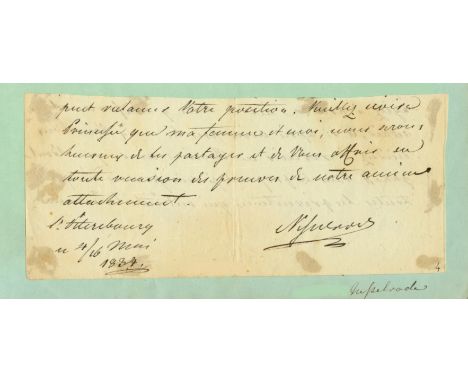 peut réclamer Votre position. Veuillez croire
Princesse que ma femme et moi, nous serons
heureux de les partager et de Vous offrir en
toute occasion des preuves de notre ancien
attachement.
St Pétersbourg
4/16 Mai
1834.
Nesselrode
4
Nesselrode